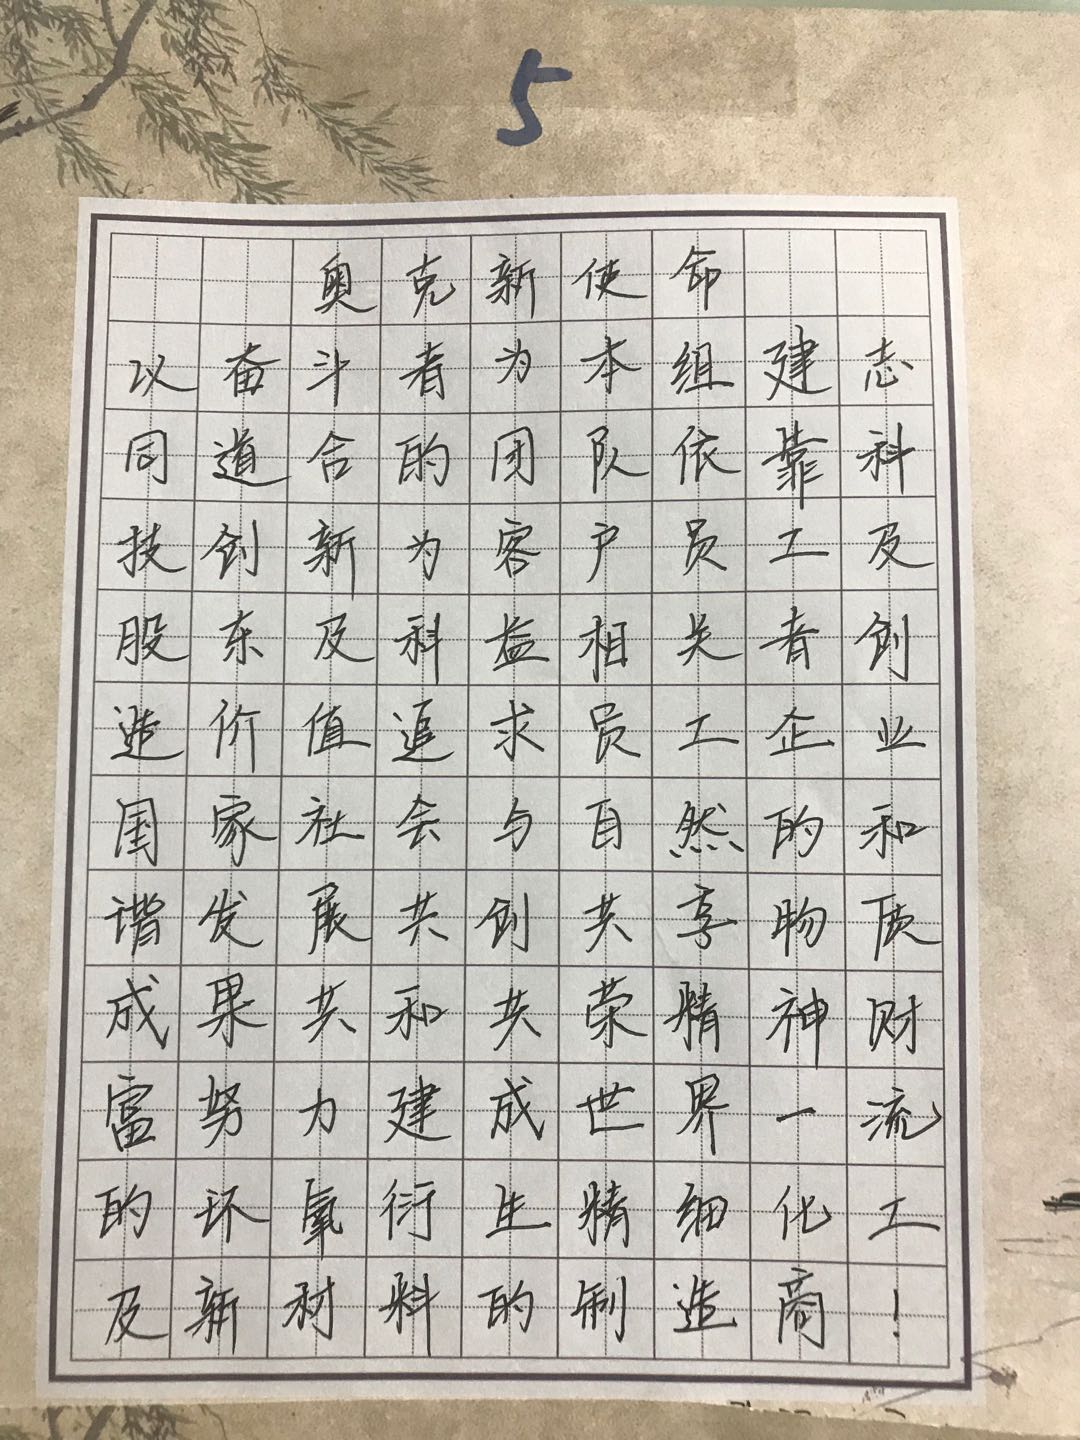 5
奥克新使命
以奋斗者为本组建志
同道合的团队依靠科
技创新为客户员工及
股东及科益相关者创
造价值追求员工企业
国家社会与自然的和
谐发展共创共享物质
成果共和共荣精神财
富努力建成世界一流
的环氧衍生精细化工
及新材料的制造商!